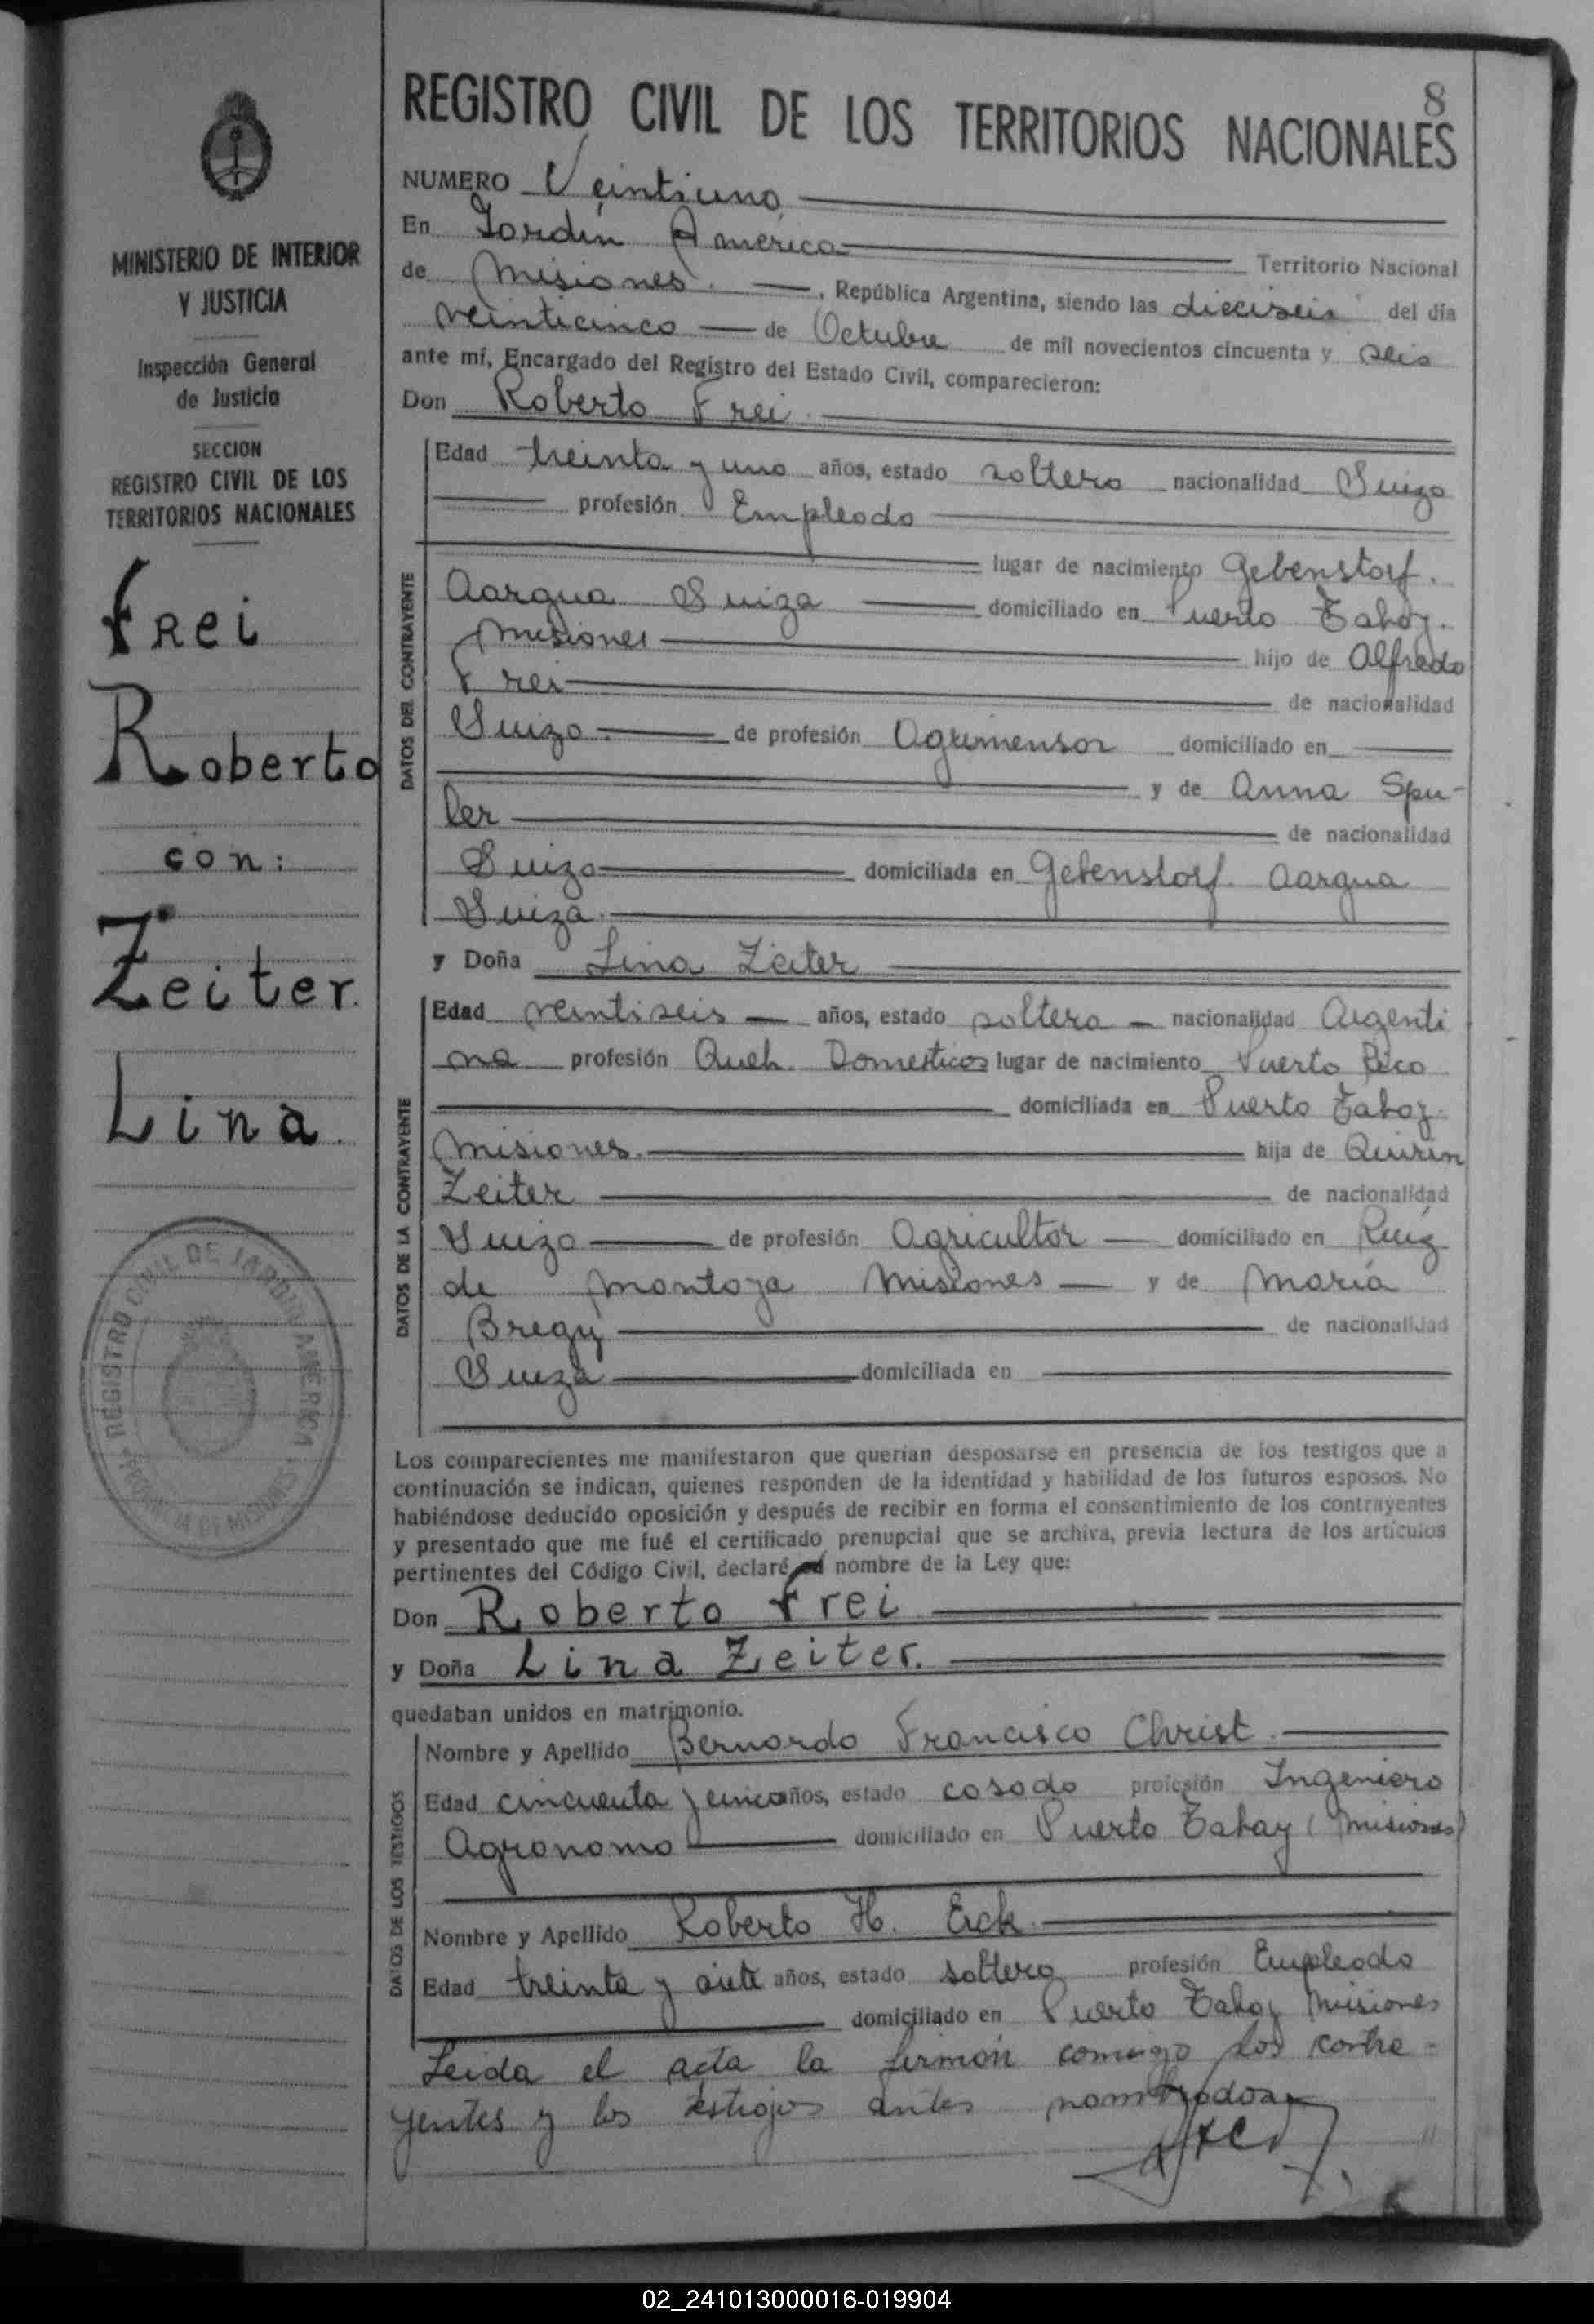 8
REGISTRO CIVIL DE LOS TERRITORIOS NACIONALES
MINISTERIO DE INTERIOR
Y JUSTICIA
Inspección General
de Justicia
SECCION
REGISTRO CIVIL DE LOS
TERRITORIOS NACIONALES
Frei
Roberto
con:
Zeiter
Lina.
REGISTRO CIVIL DE JARDIN AMERICA
PROVINCIA DE MISIONES
NUMERO Veintiuno
En Jardín América Territorio Nacional
de Misiones. , República Argentina, siendo las dieciseis del día
veinticinco de Octubre de mil novecientos cincuenta y seis
ante mí, Encargado del Registro del Estado Civil, comparecieron:
Don Roberto Frei
DATOS DEL CONTRAYENTE
Edad treinta y uno años, estado soltero nacionalidad Suizo
profesión Empleado
lugar de nacimiento Gebenstorf.
Aargua Suiza domiciliado en Puerto Tabay.
Misiones hijo de Alfredo
Frei de nacionalidad
Suizo. de profesión Agrimensor domiciliado en
y de Anna Spu-
ler de nacionalidad
Suiza domiciliada en Gebenstorf. Aargua
Suiza.
y Doña Lina Zeiter
DATOS DE LA CONTRAYENTE
Edad veintiseis años, estado soltera nacionalidad Argenti
na profesión Queh. Domesticos lugar de nacimiento Puerto Rico
domiciliada en Puerto Tabay.
Misiones. hija de Quirin
Zeiter de nacionalidad
Suizo de profesión Agricultor domiciliado en Ruíz
de Montoya Misiones y de María
Bregy de nacionalidad
Suiza domiciliada en
Los comparecientes me manifestaron que querían desposarse en presencia de los testigos que a
continuación se indican, quienes responden de la identidad y habilidad de los futuros esposos. No
habiéndose deducido oposición y después de recibir en forma el consentimiento de los contrayentes
y presentado que me fué el certificado prenupcial que se archiva, previa lectura de los artículos
pertinentes del Código Civil, declaré nombre de la Ley que:
Don Roberto Frei
y Doña Lina Zeiter.
quedaban unidos en matrimonio.
DATOS DE LOS TESTIGOS
Nombre y Apellido Bernardo Francisco Christ.
Edad cincuenta y cinco años, estado casado profesión Ingeniero
Agronomo domiciliado en Puerto Tabay (Misiones)
Nombre y Apellido Roberto H. Erck.
Edad treinta y siete años, estado soltero profesión Empleado
domiciliado en Puerto Tabay Misiones
Leida el acta la firman conmigo los contra-
yentes y los testigos antes nombrados
02_241013000016-019904